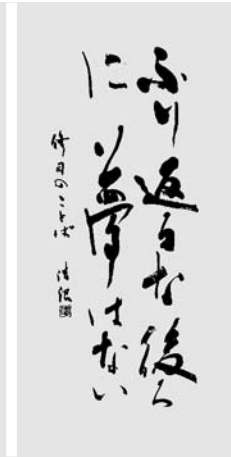 ふり返るな後ろ
に夢はない
修司のことば